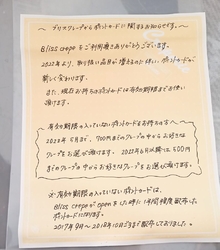 ~ ブリスクレープからポイントカードに関するお知らせです。~
Bliss crepe をご利用頂きありがとうございます。
2022年より、取り扱い品目が増えるのに伴い、ポイントカードが
新しく変わります。
また、現在お持ちのポイントカードは有効期限までお使い
頂けます。
有効期限の入っていないポイントカードをお持ちの方へ
2022年5月まで、700円までのクレープの中からお好きな
クレープをお選び頂けます。2022年6月以降は、500円
までのクレープの中からお好きなクレープをお選び頂けます。
※有効期限の入っていないポイントカードは、
Bliss crepeがopenをした時に1年間程度配布した
ポイントカードになります。
2017年9月〜2018年10月ごろまで配布しておりました。